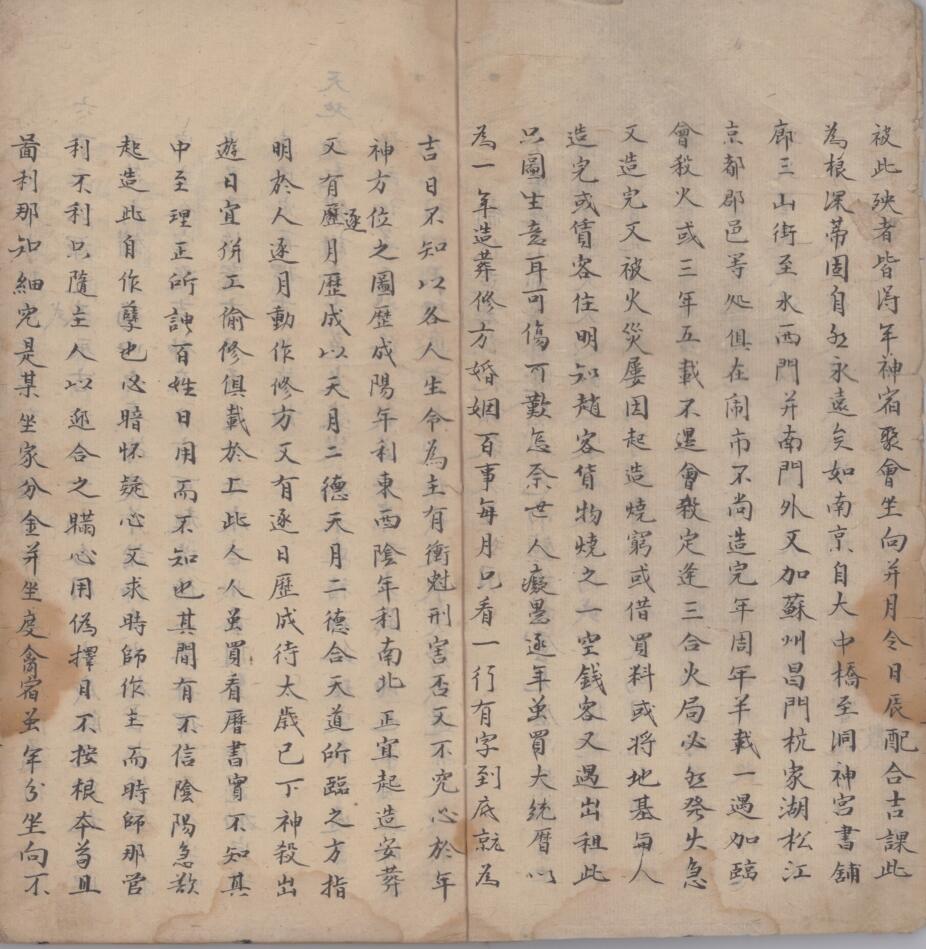 被此殃者皆為年神宿聚會坐向并月令日辰配合吉課此
為根深蒂固自然永遠矣如南京自大中橋至洞神宮書舖
廊三山街至水西門并南門外又加蘇州昌門杭家湖松江
京都郡邑等処俱在闹市不尚造完年周年半載一遇加臨
會殺火或三年五載不遇會殺定逢三合火局必然發火急
又造完又被火災屢因起造燒窮或借買料或将地基与人
造完或賃客住明知趙客貨物燒之一空錢客又過出租此
只圖生意耳可傷可歎怎奈世人癡愚逐年虽買大統曆以
為一年造葬修方婚姻百事每月只看一行有字到底就為
吉日不知以各人生令為主有衝尅刑害否又不究心於年
神方位之圖歷成陽年利東西陰年利南北正宜起造安葬
又有逐月歷成以天月二德天月二德合天道所臨之方指
明於人逐月動作修方又有逐日歷成待太歲已下神殺出
遊日宜併工偷修俱載於上此人人虽買看曆書實不知其
中至理正所謂百姓日用而不知也其間有不信陰陽急欲
起造此自作孽也必暗怀疑心又求時師作主而時師那管
利不利只隨主人以迎合之瞞心用偽擇日不按根本苟且
啚利那知細究是某坐家分金并坐度禽宿虽年分坐向不